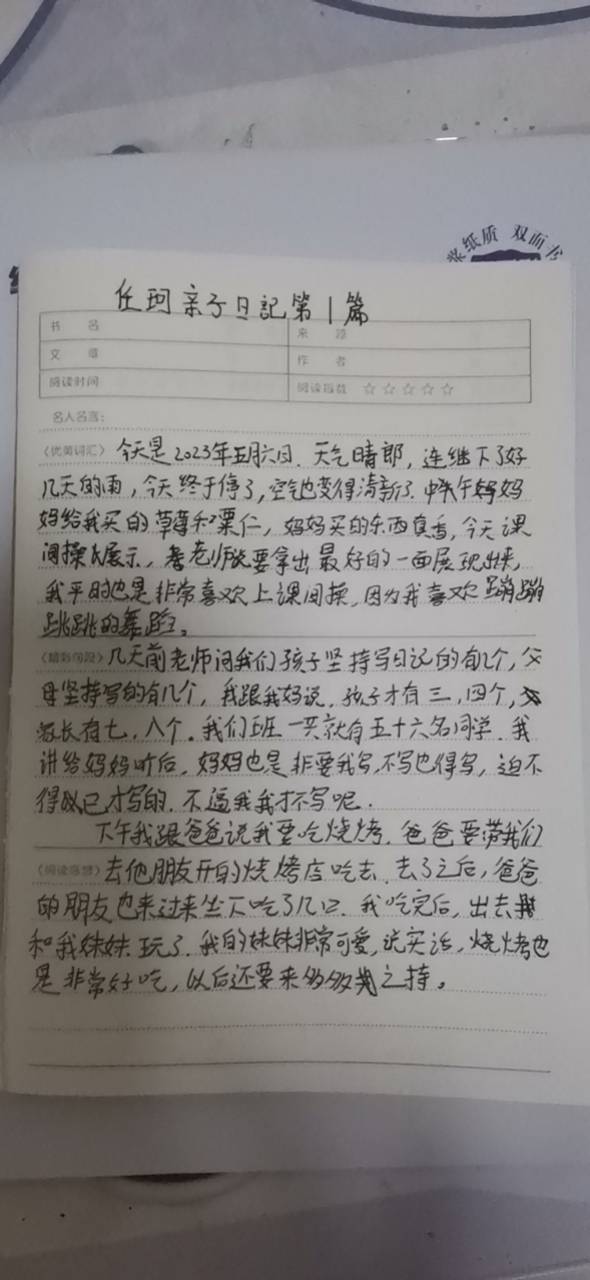 浆纸质 双面书
任珂亲子日記第1篇
书 名
来 源
文 章
作 者
阅读时间
阅读指数 ☆☆☆☆☆
名人名言:
〈优美词汇〉今天是2023年五月六日.天气晴郎,连继下了好
几天的雨,今天终于停了,空气也变得清新了.中午妈妈
妈给我买的草莓和栗仁,妈妈买的东西真香,今天课
间操展示,老师说要拿出最好的一面展现出来,
我平时也是非常喜欢上课间操,因为我喜欢蹦蹦
跳跳的舞蹈。
〈精彩句段〉几天前老师问我们孩子坚持写日记的有几个,父
母坚持写的有几个,我跟我妈说.孩子才有三,四个,
家长有七,八个.我们班一共就有五十六名同学.我
讲给妈妈听后,妈妈也是非要我写,不写也得写,迫不
得以已才写的.不逼我我才不写呢.
下午我跟爸爸说我要吃烧烤.爸爸要带我们
〈阅读感想〉去他朋友开的烧烤店吃去.去了之后,爸爸
的朋友也来过来坐下吃了几口.我吃完后,出去
和我妹妹玩了.我的妹妹非常可爱,说实话,烧烤也
是非常好吃,以后还要来多多支持。